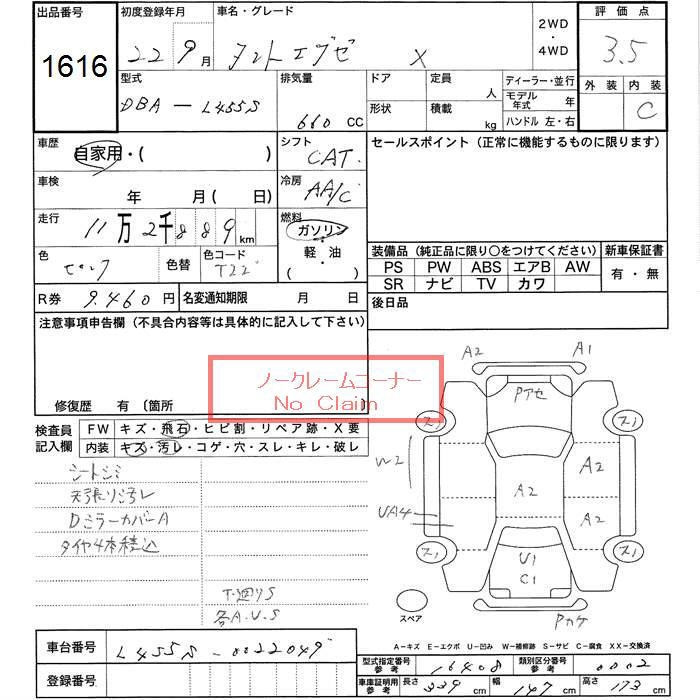 出品番号
1616
初度登録年月
22 9月
車名・グレード
タントエグゼ X
2WD
・
4WD
評価点
3.5
外装 内装
C
型式
DBA - L455S
排気量
660 CC
ドア
形状
定員 人
積載 kg
ディーラー・並行
モデル年式 年
ハンドル 左・右
車歴
自家用・( )
シフト
CAT
車検
年 月(日)
冷房
AA/C
走行
11万2千889km
燃料
ガソリン
軽・油
( )
色
ピンク
色替
色コード
T22
R券 9,460円
名変通知期限 月 日
セールスポイント(正常に機能するものに限ります)
装備品(純正品に限り○をつけてください)
PS PW ABS エアB AW
SR ナビ TV カワ
新車保証書
有・無
後日品
注意事項申告欄(不具合内容等は具体的に記入して下さい)
ノークレームコーナー
No Claim
修復歴 有 〔箇所
検査員
記入欄
FW キズ・飛石・ヒビ割・リペア跡・X要
内装 キズ・汚レ・コゲ・穴・スレ・キレ・破レ
シートシミ
天張り汚レ
DミラーカバーA
タイヤ4本積込
下廻りS
各A.U.S
A2 A1
Pアセ
ス1 ス1
W2 A2
A2
UA4 A2
ス1 ス1
U1
C1
Pカケ
スペア
A-キズ E-エクボ U-凹み W-補修跡 S-サビ C-腐食 XX-交換済
車台番号 L455S-0022049
登録番号
型式指定番号
参考
16408
類別区分番号
参考
0002
車庫証明用
参考
長さ 339 cm
幅 147 cm
高さ 173 cm